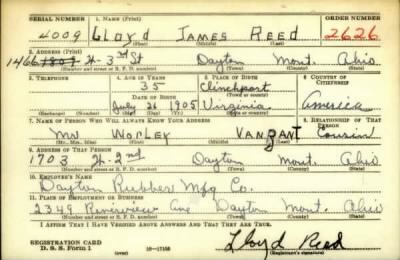 SERIAL NUMBER 1. NAME (Print) ORDER NUMBER
4009 Lloyd James Reed 2626
(First) (Middle) (Last)
2. ADDRESS (Print)
1466 1807 W-3rd St Dayton Mont. Ohio
(Number and street or R. F. D. number) (Town) (County) (State)
3. TELEPHONE 4. AGE IN YEARS 5. PLACE OF BIRTH 6. COUNTRY OF CITIZENSHIP
35 Clinchport
DATE OF BIRTH (Town or county)
July 26 1905 Virginia America
(Exchange) (Number) (Mo.) (Day) (Yr.) (State or country)
7. NAME OF PERSON WHO WILL ALWAYS KNOW YOUR ADDRESS 8. RELATIONSHIP OF THAT PERSON
Mr Worley VanZant Cousin
(Mr., Mrs., Miss) (First) (Middle) (Last)
9. ADDRESS OF THAT PERSON
1703 W-2nd Dayton Mont. Ohio
(Number and street or R. F. D. number) (Town) (County) (State)
10. EMPLOYER'S NAME
Dayton Rubber Mfg Co.
11. PLACE OF EMPLOYMENT OR BUSINESS
2349 Riverview Ave Dayton Mont. Ohio
(Number and street or R. F. D. number) (Town) (County) (State)
I AFFIRM THAT I HAVE VERIFIED ABOVE ANSWERS AND THAT THEY ARE TRUE.
REGISTRATION CARD
D. S. S. Form 1 (over) 16-17105 Lloyd Reed
(Registrant's signature)